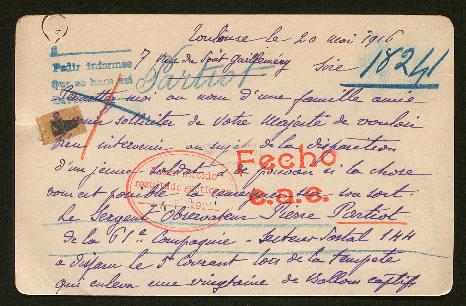 Toulouse le 20 mai 1916
7 rue du Pont Guilhemery
Sire
18241
Pedir informes
Que se haga así
Partiot
Permettez moi au nom d'une famille amie
de venir solliciter de Votre Majesté de vouloir
bien intervenir au sujet de la disparition
d'un jeune soldat et de pouvoir si la chose
vous est possible la communiquer son sort
Fecho
e.a.e.
Le Sergent Observateur Pierre Partiot
de la 61e Compagnie - Secteur Postal 144
a disparu le 5 Courant lors de la tempête
qui enleva une vingtaine de Ballons captifs